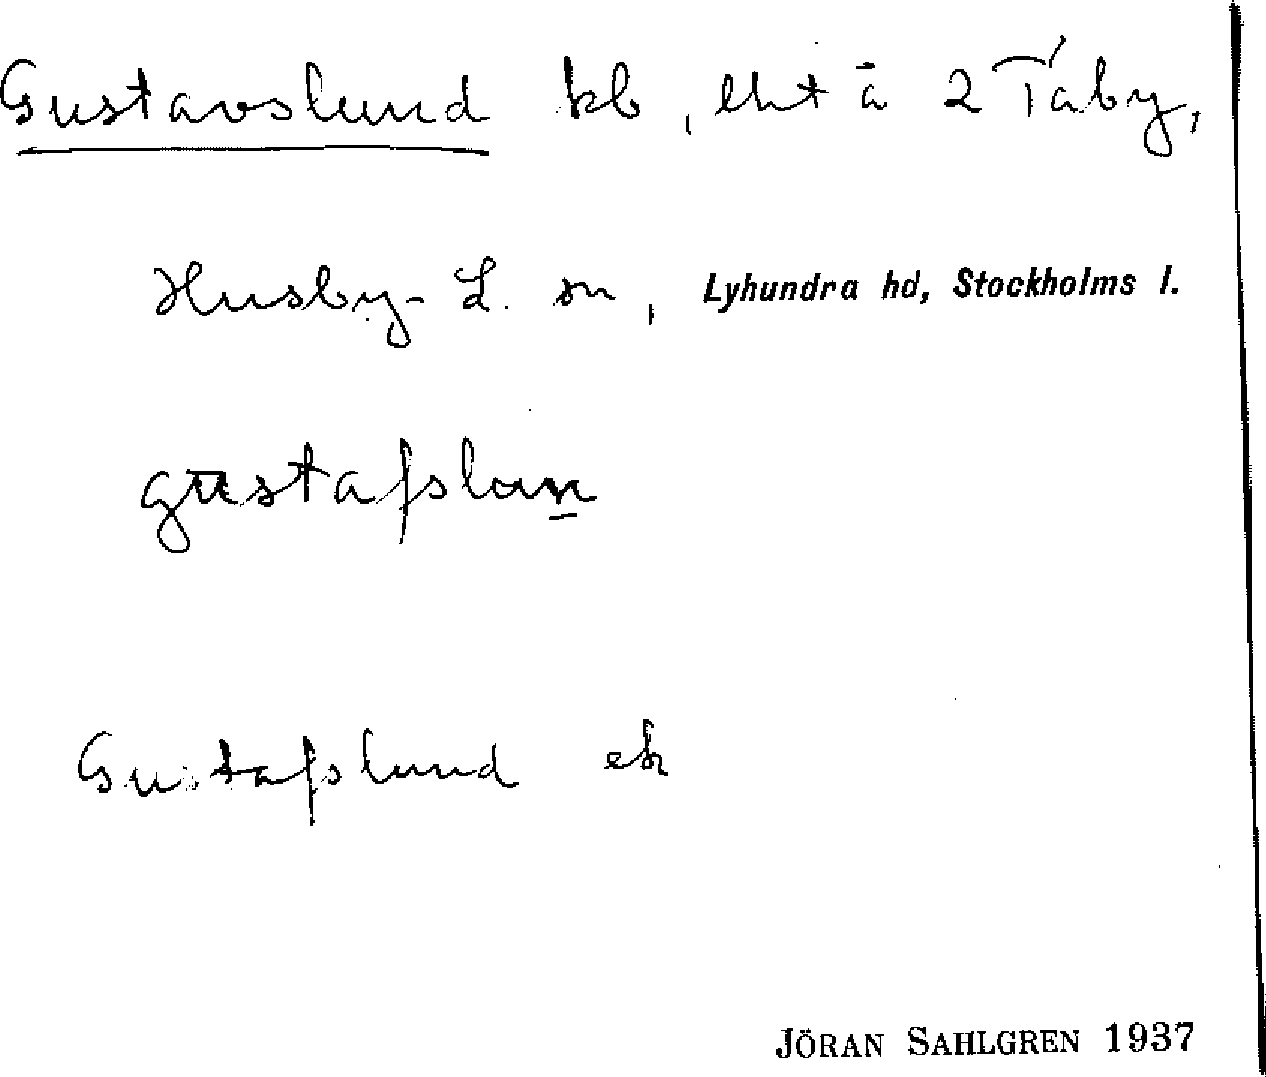 Gustavslund kb, lht å 2 Täby,
Husby-L. sn, Lyhundra hd, Stockholms l.
gustafslun
Gustafslund ek
JÖRAN SAHLGREN 1937